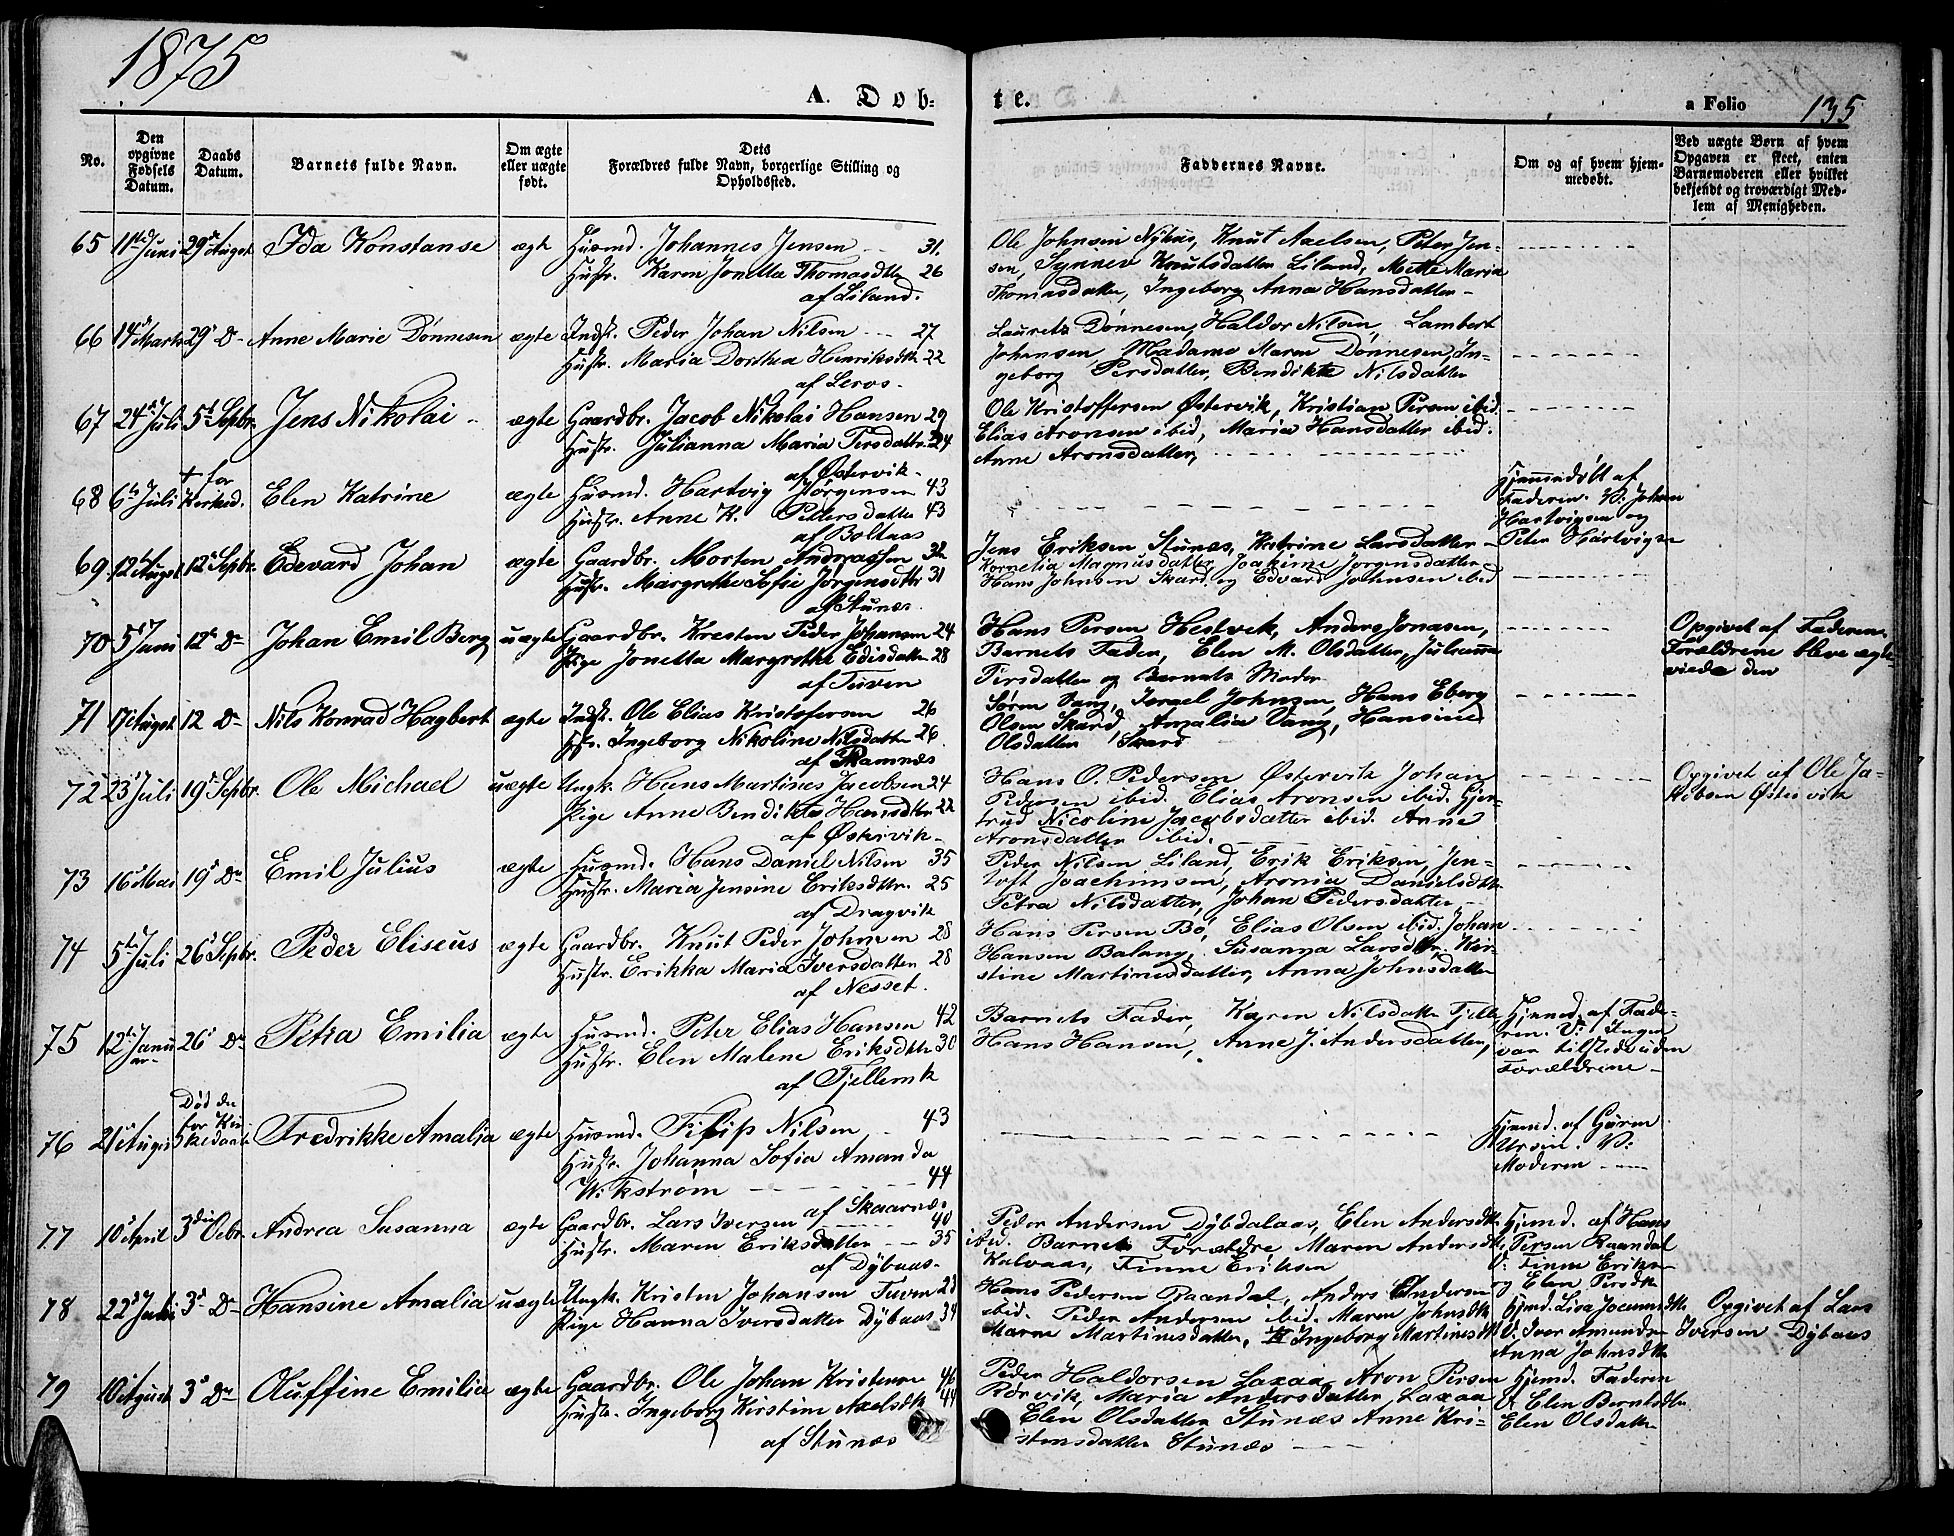 1875
A. Dob-
te.
a Folio 135
No.
Den opgivne Fødsels Datum.
Daabs Datum.
Barnets fulde Navn.
Om ægte eller uægte født.
Dets Forældres fulde Navn, borgerlige Stilling og Opholdssted.
Faddernes Navne.
Om og af hvem hjemmedøbt.
Ved uægte Børn af hvem Opgaven er skeet, enten Barnemoderen eller hvilket bekjendt og troværdigt Medlem af Menigheden.
65 11te Juni 29de Augst Ida Konstanse ægte Husmd. Johannes Jensen 31.
Hustr. Karen Jonetta Thomasdtt 26
af Liland.
Ole Johnsen Nyhus, Knut Axelsen, Peter Jen-
sen, Synnev Knutsdatter Liland, Mette Maria
Thomasdatter, Ingeborg Anna Hansdatter -
66 14d Marts 29d Do Anne Marie Dønnesen ægte Indst. Peder Johan Nilsen 27
Hustr. Maria Dorthea Henriksdtt 22
af Leros.
Lauretz Dønnesen, Haldor Nilsen, Lambert
Johansen, Madame Maren Dønnesen, In-
geborg Persdatter, Bendikte Nilsdatter
67 24de Juli 5te Septbr. Jens Nikolai ægte Gaardbr. Jacob Nikolai Hansen 29
Hustr. Julianna Maria Persdattr. 24
af Østervik.
Ole Kristoffersen Østervik, Kristian Persen ibid.
Elias Aronsen ibid, Maria Hansdatter ibid.
Anne Aronsdatter,
68 6te Juli + for Kirked. Elen Katrine ægte Husmd. Hartvig Jørgensen 43
Hustr. Anne K. Pettersdatter 43
af Boltaas
Hjemmedøbt af
Faderen. V: Johan
Hartvigsen og
Peter Hartvigsen
69 12te Augst 12te Septbr. Edevard Johan ægte Gaardbr. Morten Andreassen 32
Hustr. Margrethe Sofie Jørgensdttr 31
af Stunes.
Jens Eriksen Stunes, Katrine Larsdatter -
Kornelia Magnusdatter, Joakime Jørgensdatter
Hans Johnsen Skard og Edvard Johnsen ibid
70 5te Juni 12te Do Johan Emil Berg uægte Gaardbr. Kresten Peder Johansen 24
Pige Jonetta Margrethe Edisdatter 28
af Tuven
Hans Persen Hestvik, Anders Jonasen,
Barnets Fader, Elen M. Olsdatter, Julianna
Persdatter og Barnets Moder
Opgivet af Faderen.
Forældrene bleve ægte-
viede den
71 17de Augst 12 Do Nils Konrad Hagbert ægte Indst. Ole Elias Kristofersen 26
Hstr. Ingeborg Nikoline Nilsdatter 26
af Ramnæs
Søren Vang, Israel Johnsen, Hans Eberg
Olsen Skard, Amalia Vang, Hansine
Olsdatter Skard
72 23d Juli 19d Septbr. Ole Michael uægte Ungk. Hans Martines Jacobsen 24
Pige Anne Bendikta Hansdtter 22
af Østervik.
Hans O. Pedersen Østervik Johan
Pedersen ibid. Elias Aronsen ibid. Gjer-
trud Nicoline Jacobsdatter ibid. Anne
Aronsdatter ibid.
Opgivet af Ole Ja-
kobsen Østervik
73 16de Mai 19d Do Emil Julius ægte Husmd. Hans Daniel Nilsen 35
Hustr. Maria Jensine Eriksdttr. 25
af Dragvik
Peder Nilsen Liland, Erik Eriksen, Jen-
toft Joachimsen, Aronia Danielsdtt
Petra Nilsdatter, Johan Pedersdatter
74 5te Juli 26d Septbr. Peder Eliseus ægte Gaardbr. Knut Peder Johnsen 28
Hustr. Erikka Maria Iversdatter 28
af Nesset.
Hans Persen Bø, Elias Olsen ibid. Johan
Hansen Balang, Susanna Larsdtr. Kir-
stine Martinesdatter, Anna Johnsdatter
75 12te Januar 26d Do Petra Emilia ægte Husmd. Peter Elias Hansen 42
Hustr. Elen Malene Eriksdttr 30
af Fjellenk
Barnets Fader, Karen Nilsdatter Fjelle
Hans Hansen, Anne J. Andersdatter,
Hjmed. af Fade-
ren. V: Ingen
var tilstede uden
Forældrene -
76 21d Augst Død der for Kirkedaab Fredrikke Amalia ægte Husmd. Filip Nilsen 43
Hustr. Johanna Sofia Amanda
Wikstrøm 44
af Skaarnes
Hjmd. af Gurin
Ursin. V:
Moderen
77 10d April 3die Octbr. Andrea Susanna ægte Gaardbr. Lars Iversen 40
Hustr. Maren Eriksdatter 35
af Dybaas.
Peder Andersen Dybdalaas, Elen Andersdtt.
ibid. Barnets Forældre, Maren Andersdtt,
Kalvaas, Finne Eriksen
Hjemd. af Hans
Persen Raandal
V: Finne Eriksen
og Elen Persdtt
78 22d Juli 3d Do Hansine Amalia uægte Ungk. Kristen Johansen Tuven 23
Pige Hanna Iversdatter Dybaas 34
Hans Pedersen Raandal, Anders Andersen
ibid. Peder Andersen ibid. Maren Johnsdtt
Marne Martinesdatter, Ingeborg Martinesdtt
Hjmd. Lisa Jocumsdtt
V: Iver Amundsen
Anna Johnsdtt
Opgivet af Lars
Iversen Dybaas
79 10d August 3d Do Ouffine Emilia ægte Gaardbr. Ole Johan Kristensen 46
Hustr. Ingeborg Kirstine Axelsdtt 44
af Stunes
Peder Haldorsen Laxaa, Aron Persen
Rørvik, Maria Andersdatter Laxaa
Elen Olsdatter Stunæs Anne Kri-
stensdatter Stunæs
Hjemd. Faderen
V. Elen Berntsdtr
Elen Olsdatter